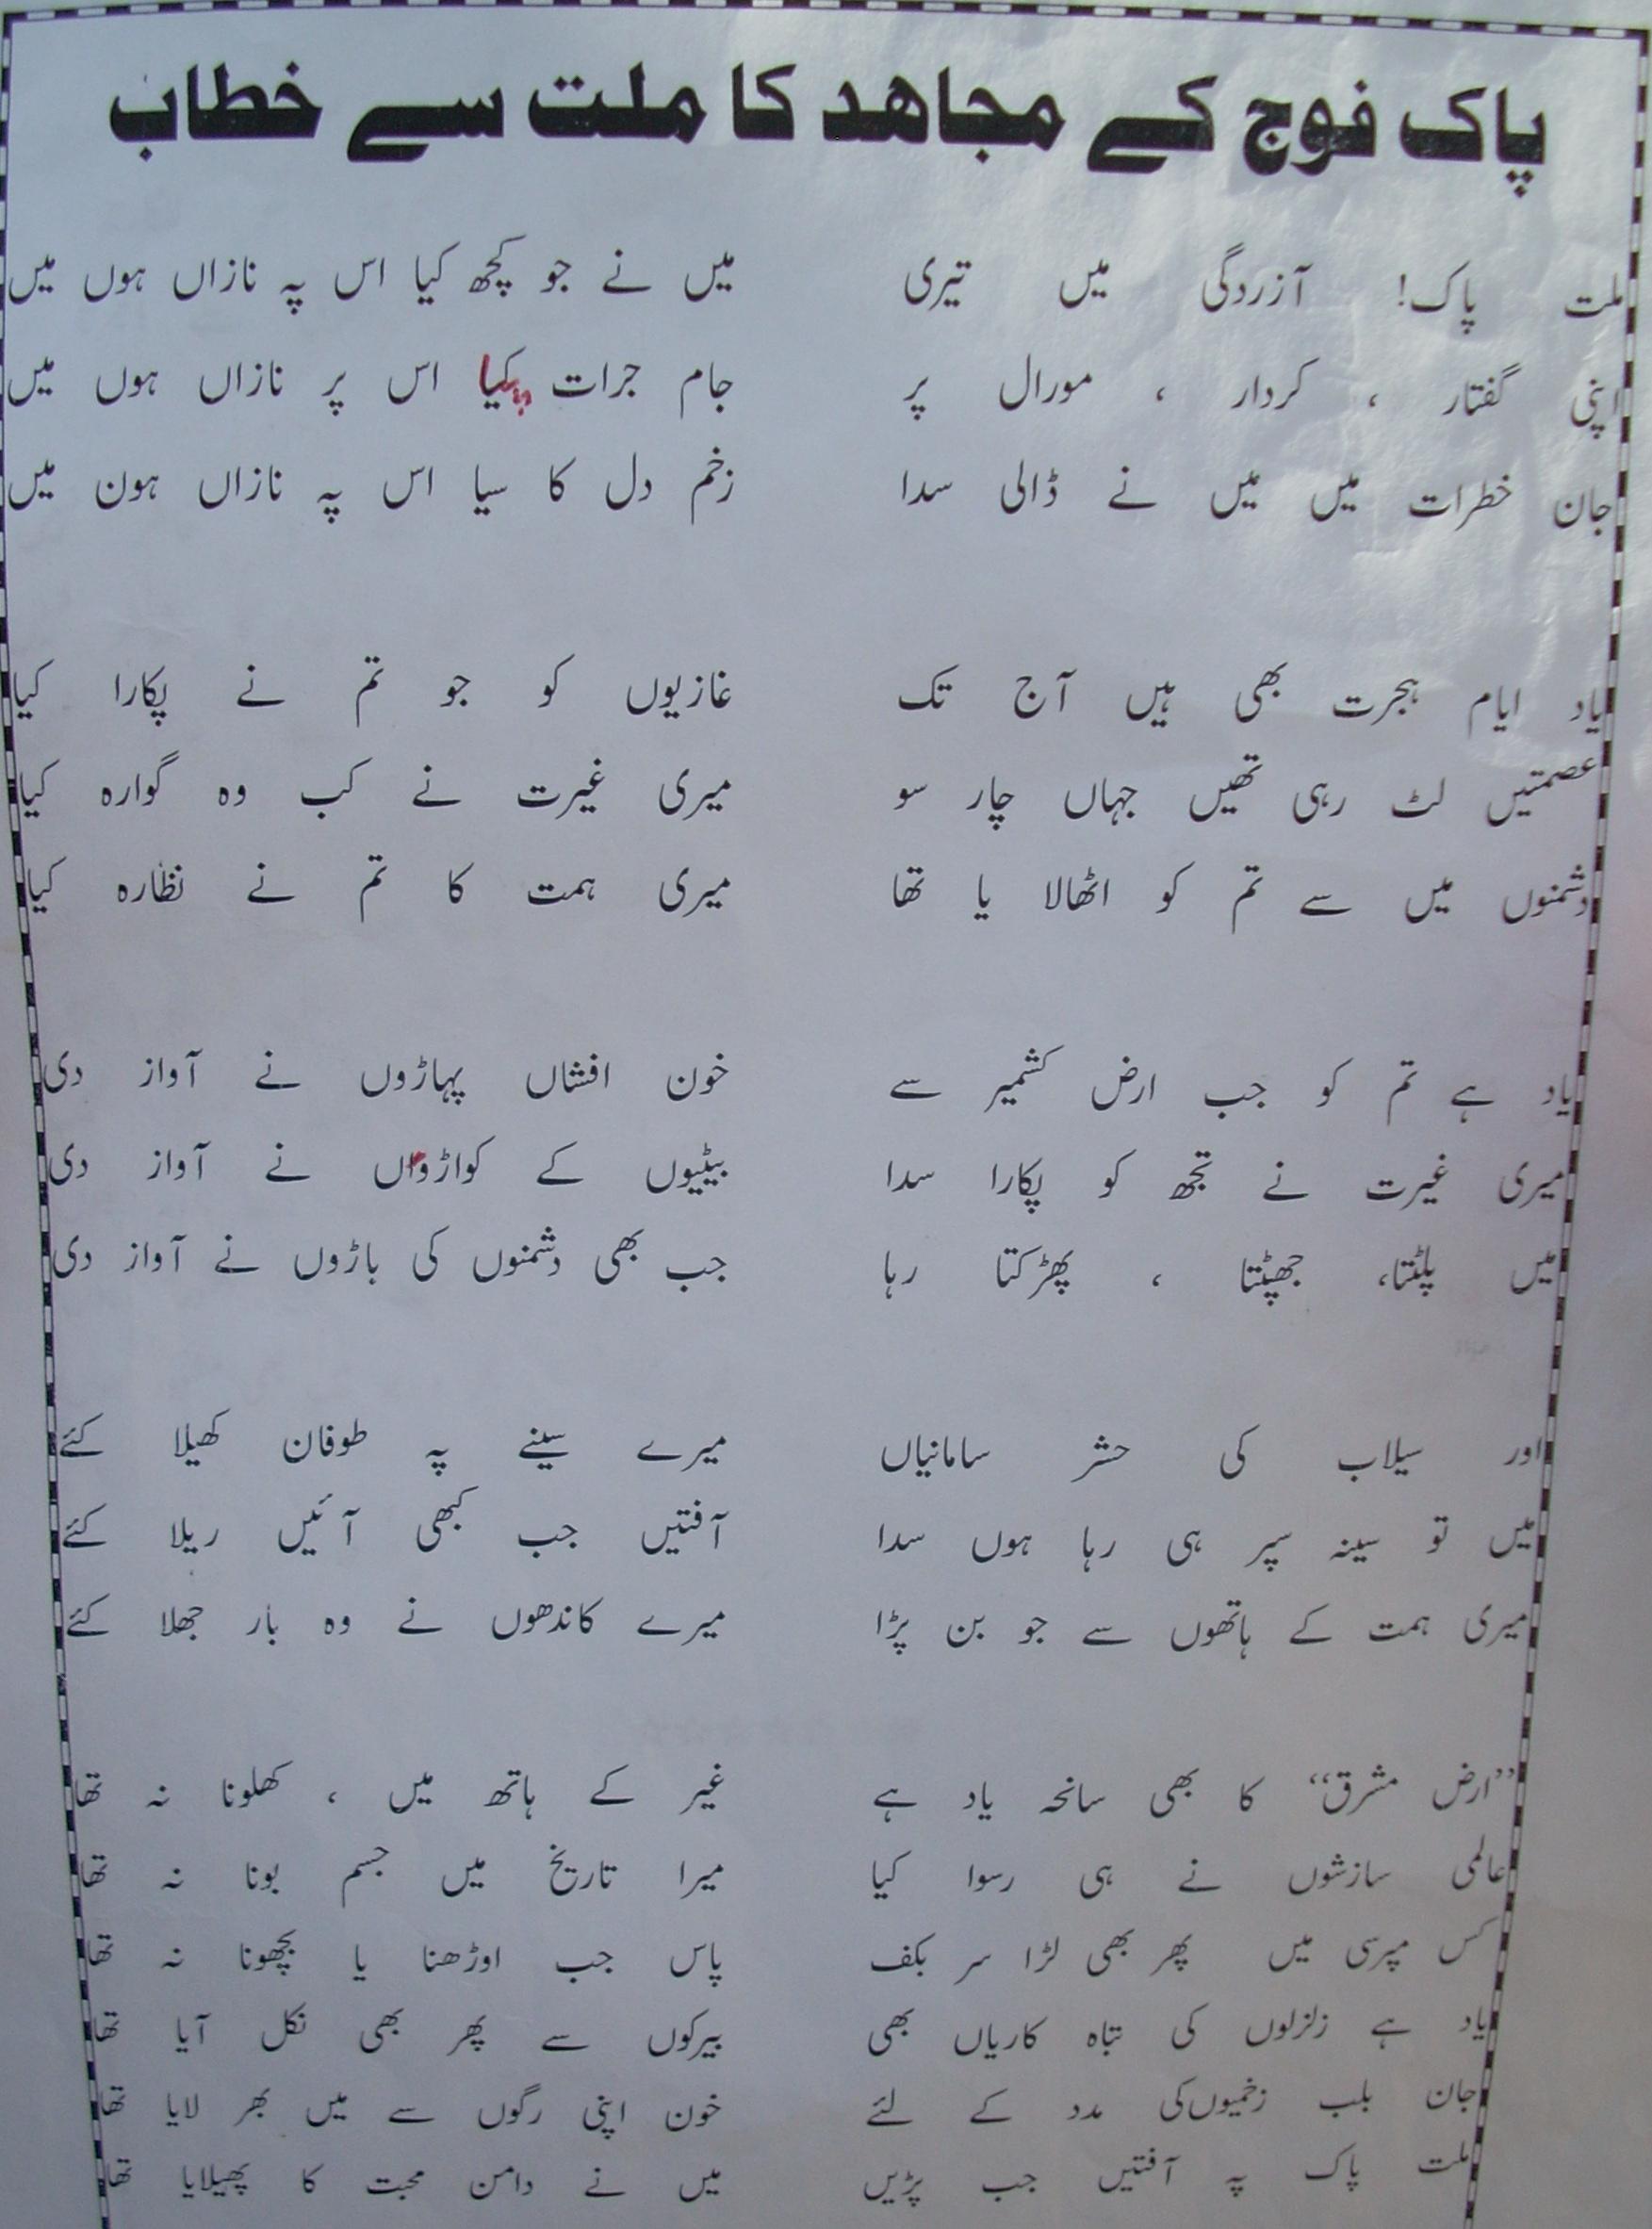 پاک فوج کے مجاھد کا ملت سے خطاب
ملت پاک! آزردگی میں تیری میں نے جو کچھ کیا اس پہ نازاں ہوں میں
اپنی گفتار ، کردار ، مورال پر جام جرات پیا اس پر نازاں ہوں میں
جان خطرات میں میں نے ڈالی سدا زخم دل کا سیا اس پہ نازاں ہون میں
یاد ایام ہجرت بھی ہیں آج تک غازیوں کو جو تم نے پکارا کیا
عصمتیں لٹ رہی تھیں جہاں چار سو میری غیرت نے کب وہ گوارہ کیا
دشمنوں میں سے تم کو اٹھالا یا تھا میری ہمت کا تم نے نظارہ کیا
یاد ہے تم کو جب ارض کشمیر سے خون افشاں پہاڑوں نے آواز دی
میری غیرت نے تجھ کو پکارا سدا بیٹیوں کے کواڑوں نے آواز دی
میں پلٹتا، جھپٹتا ، پھڑکتا رہا جب بھی دشمنوں کی باڑوں نے آواز دی
اور سیلاب کی حشر سامانیاں میرے سینے پہ طوفان کھیلا کئے
میں تو سینہ سپر ہی رہا ہوں سدا آفتیں جب کبھی آئیں ریلا کئے
میری ہمت کے ہاتھوں سے جو بن پڑا میرے کاندھوں نے وہ بار جھلا کئے
”ارض مشرق“ کا بھی سانحہ یاد ہے غیر کے ہاتھ میں ، کھلونا نہ تھا
عالمی سازشوں نے ہی رسوا کیا میرا تاریخ میں جسم بونا نہ تھا
کس مپرسی میں پھر بھی لڑا سر بکف پاس جب اوڑھنا یا بچھونا نہ تھا
یاد ہے زلزلوں کی تباہ کاریاں بھی بیرکوں سے پھر بھی نکل آیا تھا
جان بلب زخمیوں کی مدد کے لئے خون اپنی رگوں سے میں بھر لایا تھا
ملت پاک پہ آفتیں جب پڑیں میں نے دامن محبت کا پھیلایا تھا